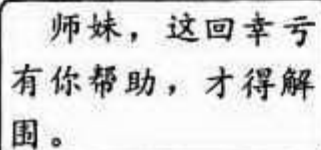 师妹，这回幸亏
有你帮助，才得解
围。